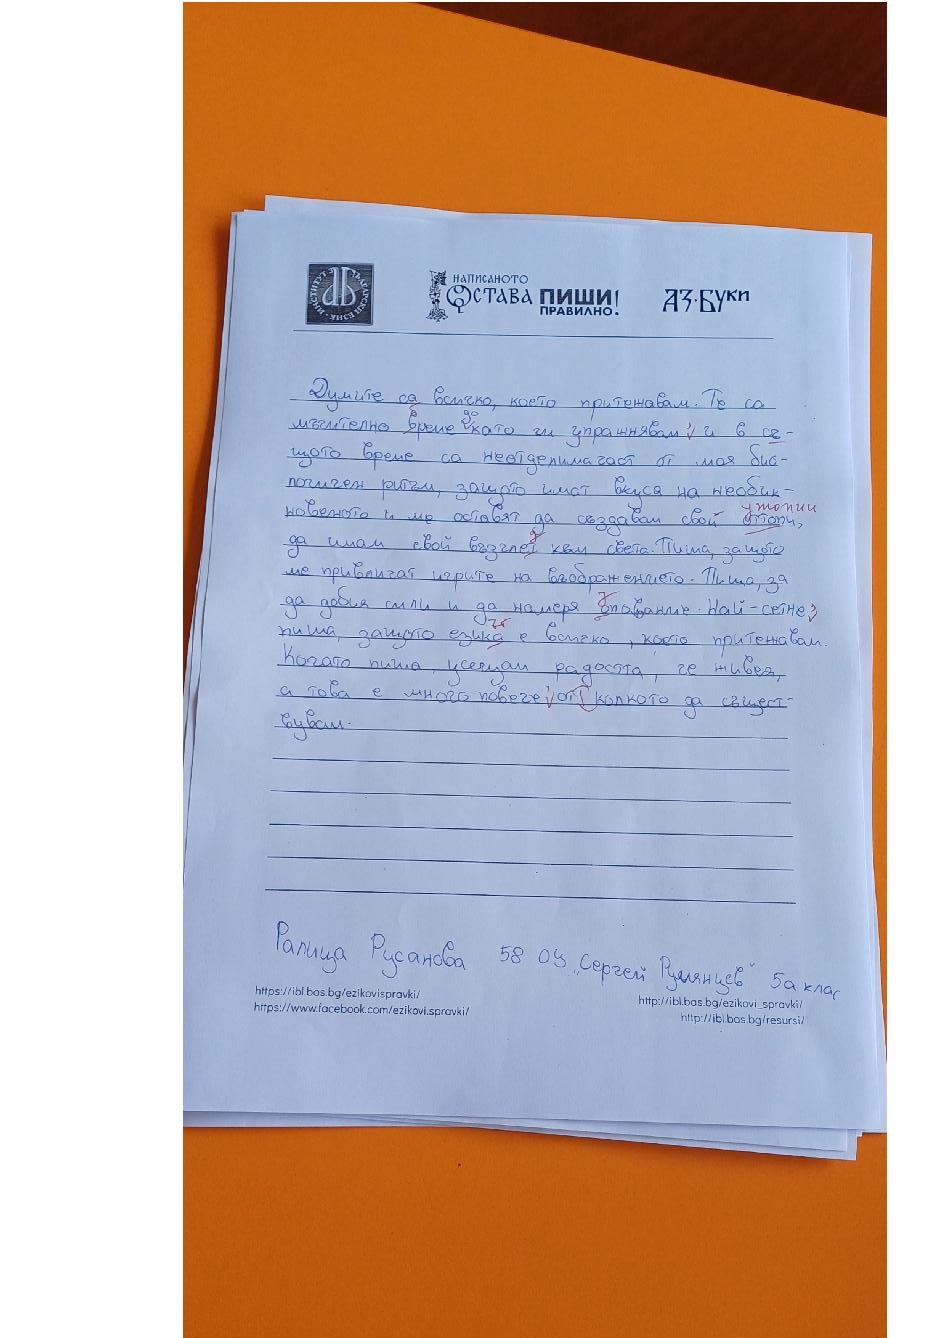 ИНСТИТУТ ЗА БЪЛГАРСКИ ЕЗИК
НАПИСАНОТО
ОСТАВА ПИШИ
ПРАВИЛНО!
АЗ·БУКИ
Думите са всичко, което притежавам. Те са
до
мъчително време като ги упражнявам и в съ-
щото време са неотделима част от моя био-
логичен ритъм, защото имат вкуса на необик-
утопии
новеното и ме оставят да създавам свой
да имам свой възглед към света. Пиша, защото
ме привличат игрите на въображението. Пиша, за
да добия сили и да намеря упование. Най-сетне
пиша, защото езика е всичко, което притежавам.
Когато пиша, усещам радостта, че живея,
а това е много повече от колкото да същест-
вувам.
Ралица Русанова 58 ОУ „Сергей Румянцев“ 5а клас
https://ibl.bas.bg/ezikovispravki/
https://www.facebook.com/ezikovi.spravki/
http://ibl.bas.bg/ezikovi_spravki/
http://ibl.bas.bg/resursi/